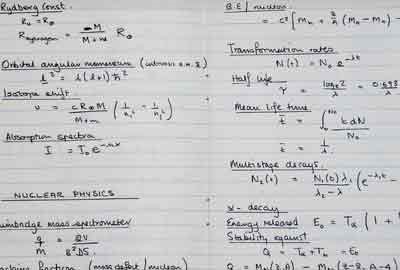 Rydberg Const.
R₀ = R∞
R_hydrogen = M / (M + m) R∞
Orbital angular momentum
l² = l(l+1) ħ²
Isotope shift
υ = cR∞M / (M+m) (1/n₁² - 1/n₂²)
Absorption spectra
I = I₀ e^-nx
NUCLEAR PHYSICS
Bainbridge mass spectrometer
q/m = 2V / B²DS
fraction (mass defect/nucleon)
B.E/nucleon
= c² [Mₙ + Z/A (M_H - Mₙ) -
Transformation rates
N(t) = N₀ e^-λt
Half life
τ = logₑ2 / λ = 0.693 / λ
Mean life time
t̄ = ∫₀^N₀ t dN / N₀
t̄ = 1/λ
Multistage decays.
N₂(t) = N₁(0) λ₁ / (λ₂ - λ₁) (e^-λ₁t -
α-decay
Energy released E₀ = Tα (1 +
Stability against
Q = Tα + Tb = E₀
Q = M(Z,A) - M(Z-2, A-4)